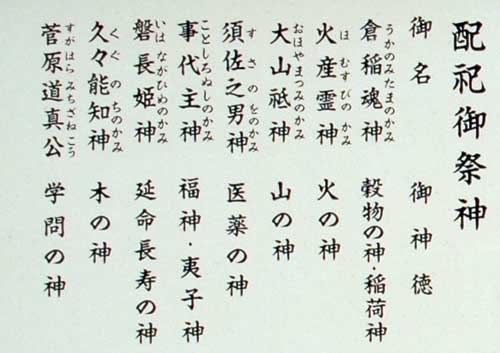 配祀御祭神
御名 御神徳
倉稲魂神 うかのみたまのかみ 穀物の神・稲荷神
火産霊神 ほむすびのかみ 火の神
大山祇神 おほやまつみのかみ 山の神
須佐之男神 すさのをのかみ 医薬の神
事代主神 ことしろぬしのかみ 福神・夷子神
磐長姫神 いはながひめのかみ 延命長寿の神
久々能知神 くぐのちのかみ 木の神
菅原道真公 すがはらみちざねこう 学問の神